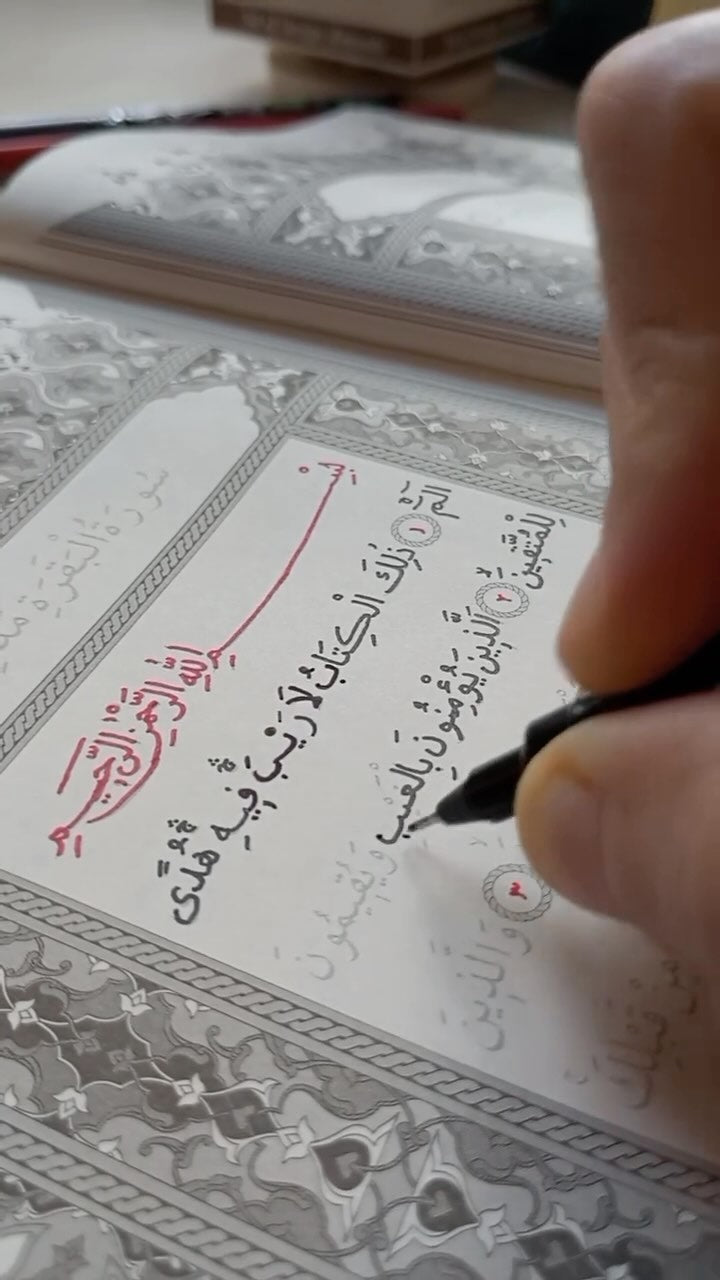 سُورَةُ الْبَقَرَةِ
بِسْمِ اللّٰهِ الرَّحْمٰنِ الرَّحِيمِ
الٓمٓ ١ ذٰلِكَ الْكِتَابُ لَا رَيْبَ فِيهِ هُدًى
لِلْمُتَّقِينَ ٢ الَّذِينَ يُؤْمِنُونَ بِالْغَيْبِ وَيُقِيمُونَ
٣ وَالَّذِينَ
مِنْ قَبْلِكَ